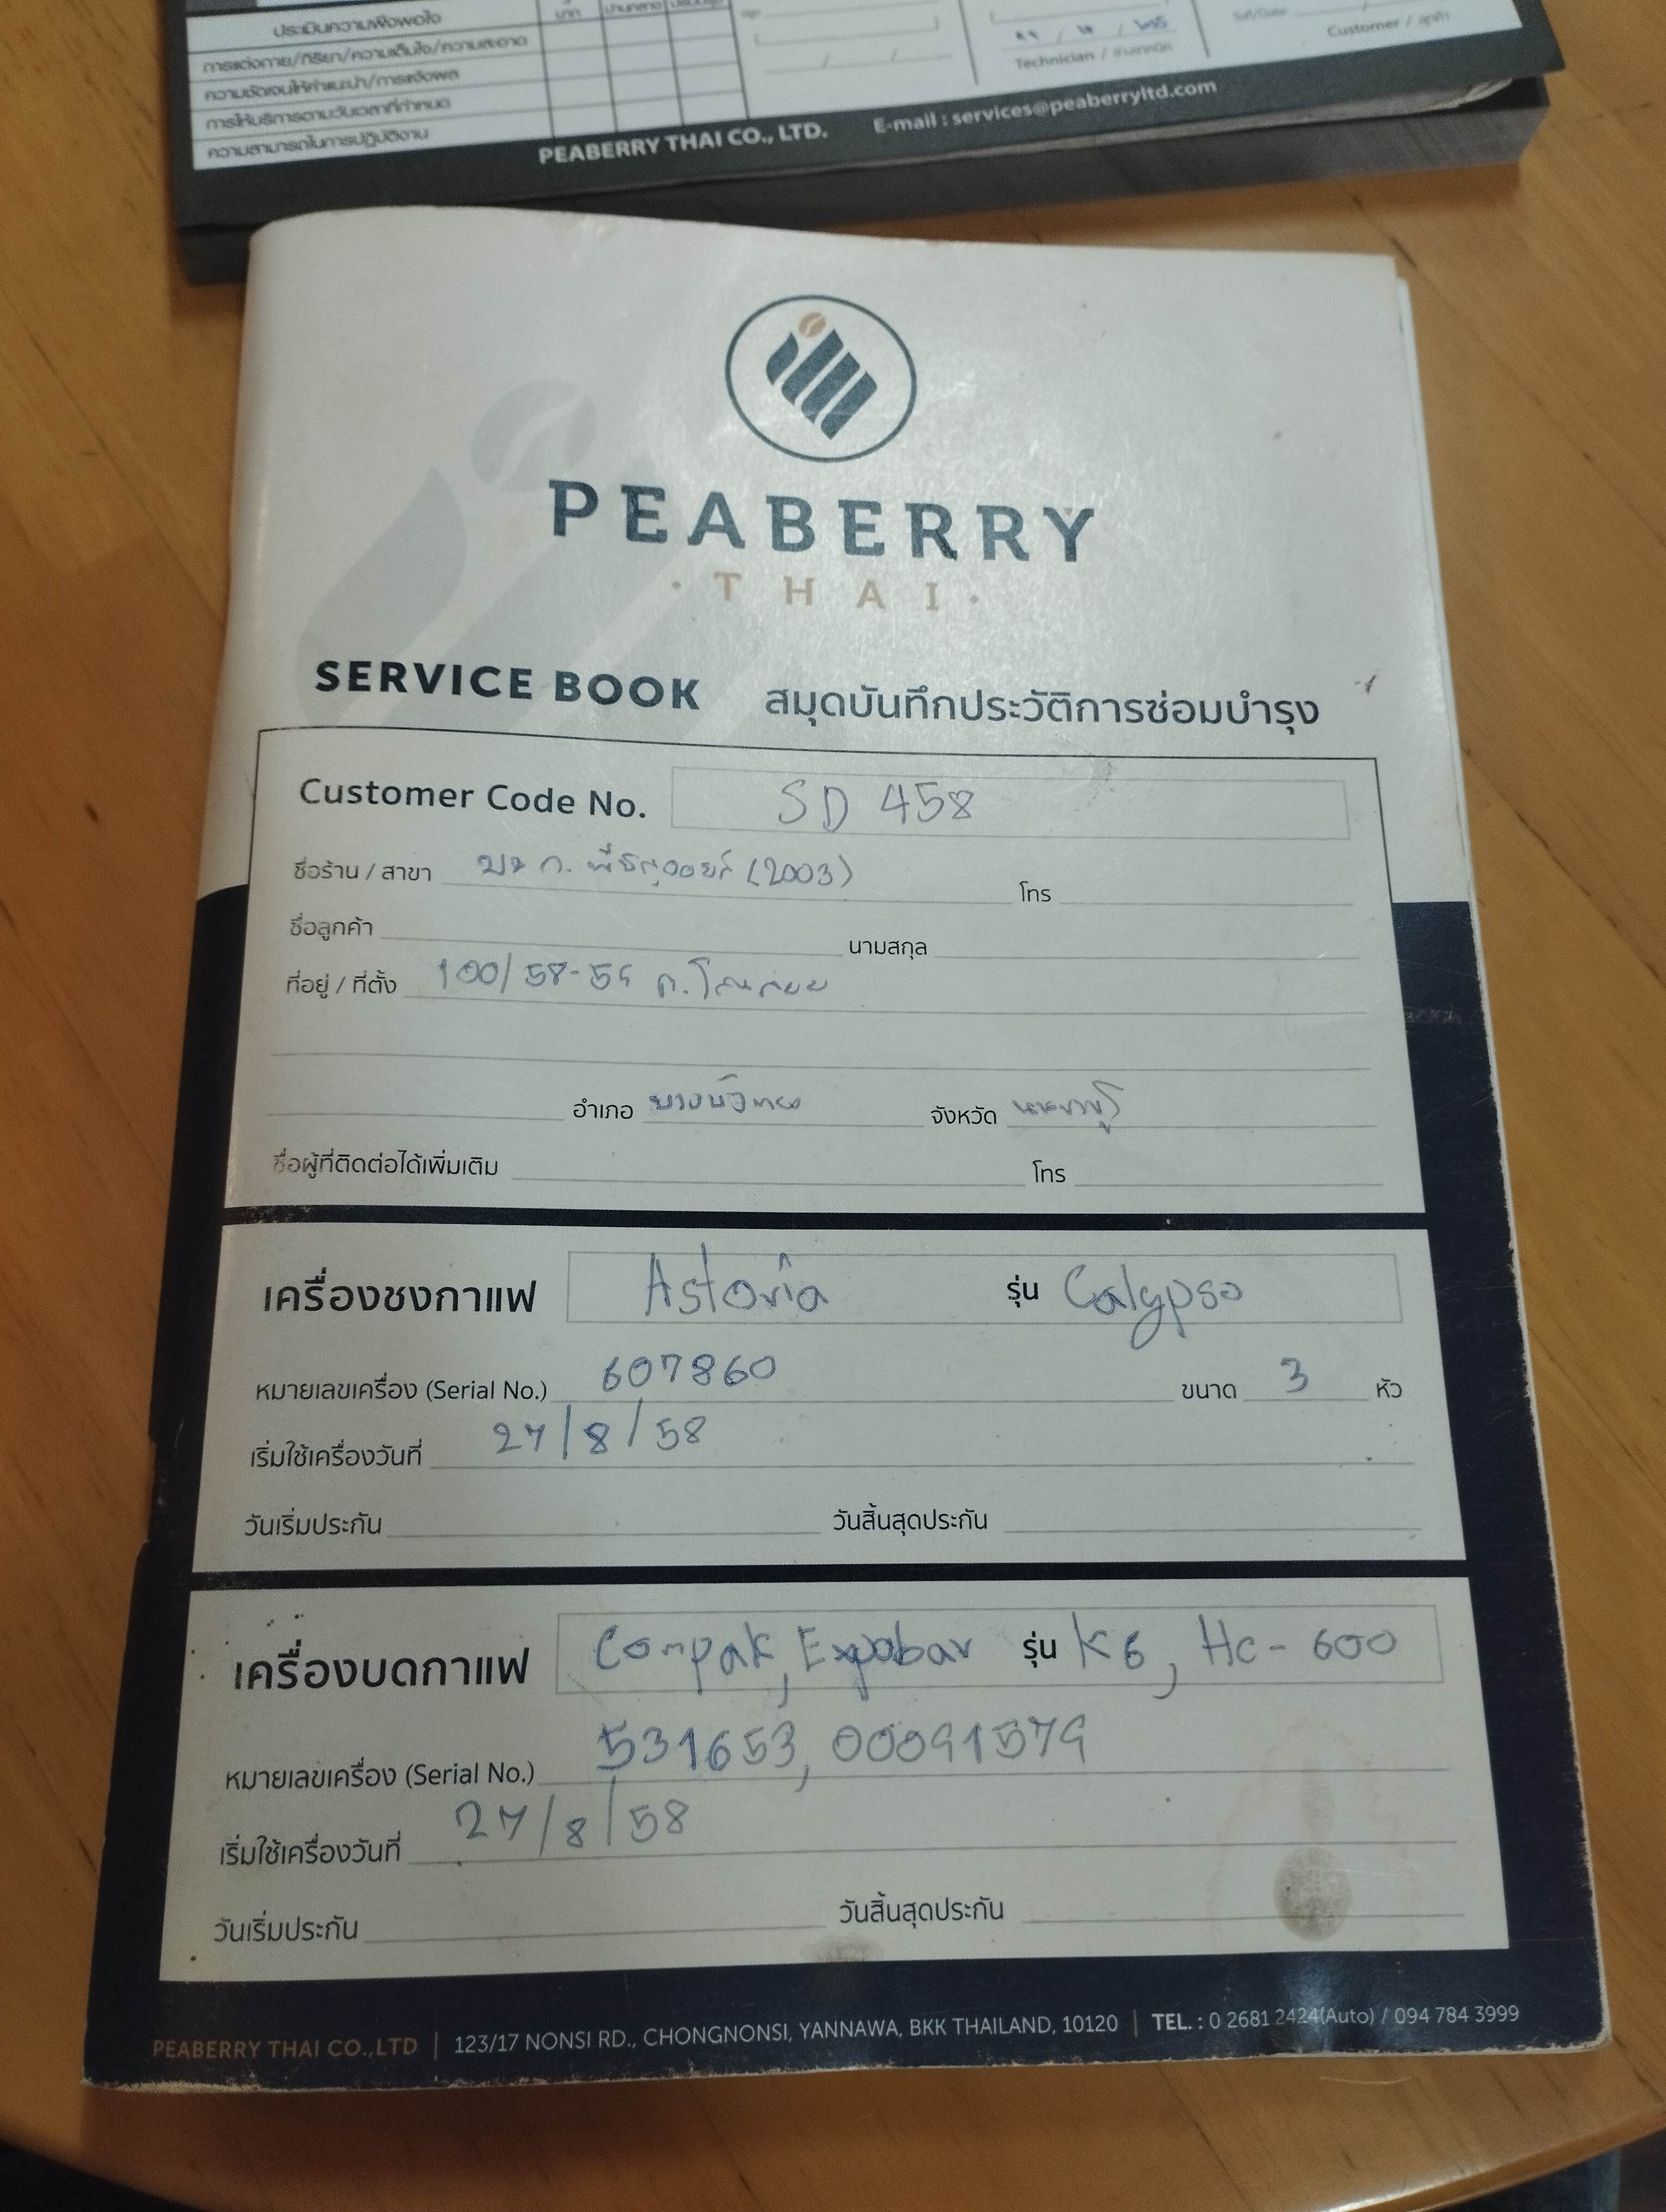 ประเมินความพึงพอใจ
การแต่งกาย/กิริยา/ความเต็มใจ/ความสะอาด
ความชัดเจนให้คำแนะนำ/การแจ้งผล
การให้บริการตามวันเวลาที่กำหนด
ความสามารถในการปฏิบัติงาน
มาก ปานกลาง
Technician / ช่างเทคนิค
Customer / ลูกค้า
PEABERRY THAI CO., LTD. E-mail : services@peaberryltd.com
PEABERRY
• THAI •
SERVICE BOOK สมุดบันทึกประวัติการซ่อมบำรุง
Customer Code No. SD 458
ชื่อร้าน / สาขา (2003) โทร
ชื่อลูกค้า นามสกุล
ที่อยู่ / ที่ตั้ง 100/58-59
อำเภอ บางบัวทอง จังหวัด นนทบุรี
ชื่อผู้ที่ติดต่อได้เพิ่มเติม โทร
เครื่องชงกาแฟ Astoria รุ่น Calypso
หมายเลขเครื่อง (Serial No.) 607860 ขนาด 3 หัว
เริ่มใช้เครื่องวันที่ 27/8/58
วันเริ่มประกัน วันสิ้นสุดประกัน
เครื่องบดกาแฟ Compak, Expobar รุ่น K6, HC-600
หมายเลขเครื่อง (Serial No.) 531653, 00091579
เริ่มใช้เครื่องวันที่ 27/8/58
วันเริ่มประกัน วันสิ้นสุดประกัน
PEABERRY THAI CO.,LTD | 123/17 NONSI RD., CHONGNONSI, YANNAWA, BKK THAILAND, 10120 | TEL. : 0 2681 2424(Auto) / 094 784 3999